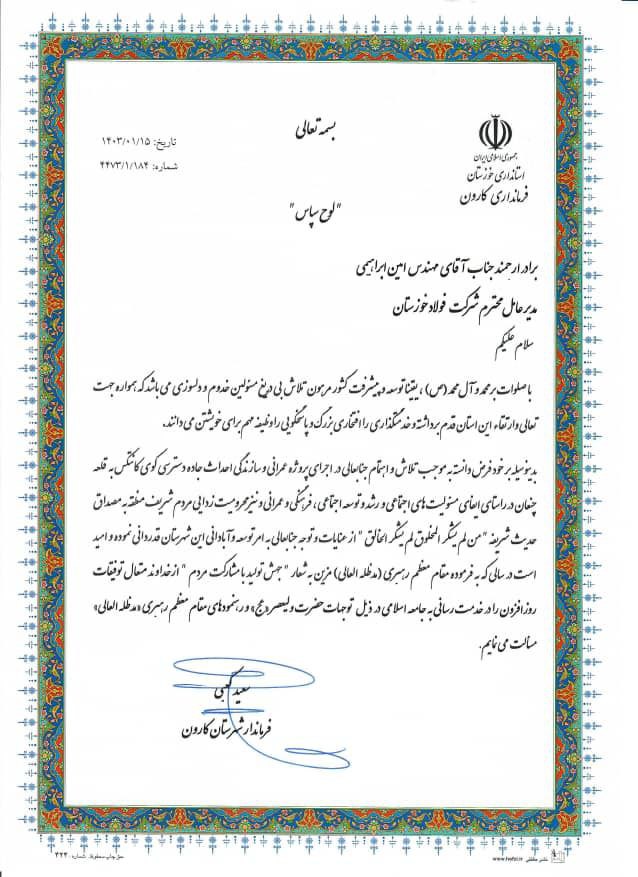 بسمه تعالی
جمهوری اسلامی ایران
استانداری خوزستان
فرمانداری کارون
تاریخ: ۱۴۰۳/۰۱/۱۵
شماره: ۴۴۷۳/۱/۱۸۴
"لوح سپاس"
برادر ارجمند جناب آقای مهندس امین ابراهیمی
مدیرعامل محترم شرکت فولاد خوزستان
سلام علیکم
با صلوات بر محمد و آل محمد (ص) ، یقینا توسعه و پیشرفت کشور مرهون تلاش بی دریغ مسئولین خدوم و دلسوزی می باشد که همواره جهت
تعالی و ارتقاء این استان قدم برداشته و خدمتگذاری را افتخاری بزرگ و پاسخگویی را وظیفه مهم برای خویشتن می دانند.
بدینوسیله بر خود فرض دانسته به موجب تلاش و اهتمام جنابعالی در اجرای پروژه عمرانی و سازندگی احداث جاده دسترسی کوی کانتکس به قلعه
چنعان در راستای ایفای مسئولیت های اجتماعی و رشد و توسعه اجتماعی، فرهنگی و عمرانی و نیز محرومیت زدایی مردم شریف منطقه به مصداق
حدیث شریفه "من لم یشکر المخلوق لم یشکر الخالق " از عنایات و توجه جنابعالی به امر توسعه و آبادانی این شهرستان قدردانی نموده و امید
است در سالی که به فرموده مقام معظم رهبری (مدظله العالی) مزین به شعار "جهش تولید با مشارکت مردم " از خداوند متعال توفیقات
روزافزون را در خدمت رسانی به جامعه اسلامی در ذیل توجهات حضرت ولیعصر«عج» و رهنمودهای مقام معظم رهبری «مدظله العالی»
مسالت می نمایم.
سعید کعبی
فرماندار شهرستان کارون
حق چاپ محفوظ. شماره: ۴۲۴